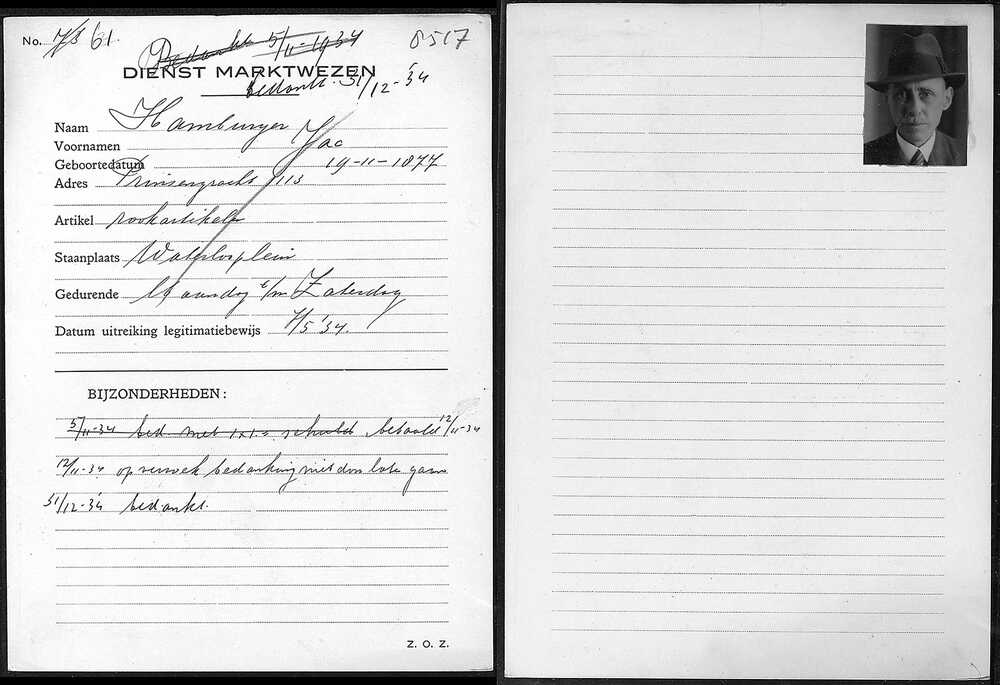 No. 7/5 61.
8517
Bedankt 5/11-1934
DIENST MARKTWEZEN
bedankt. 31/12-'34
Naam Hamburger
Voornamen Jac
Geboortedatum 19-11-1877
Adres Prinsengracht 113
Artikel rookartikelen
Staanplaats Waterlooplein
Gedurende Maandag t/m Zaterdag
Datum uitreiking legitimatiebewijs 7/5 '34.
BIJZONDERHEDEN:
5/11-34 bed met schuld betaald 12/11-34
12/11-34 op verzoek bedanking niet door laten gaan
31/12-'34 bedankt.
Z. O. Z.